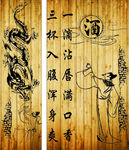 酒
一滴沾唇滿口香
三杯入腹渾身爽